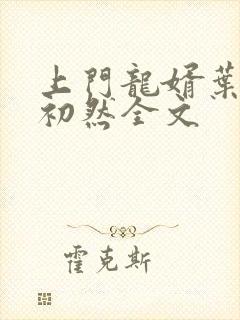 上門龍婿葉
初然全文
霍克斯